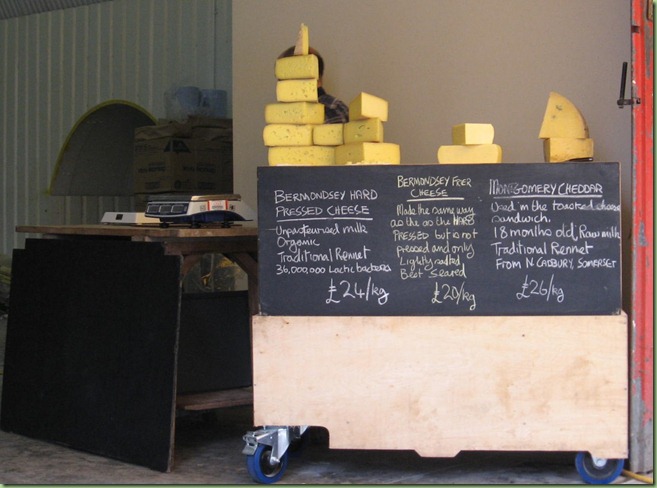 BERMONDSEY HARD
PRESSED CHEESE
Unpasteurised milk
Organic
Traditional Rennet
36,000,000 Lactic bacteria
£24/kg
BERMONDSEY FRIER
CHEESE
Made the same way
as the
PRESSED but is not
pressed and only
Lightly salted
Best Seared
£20/kg
MONTGOMERY CHEDDAR
Used in the toasted cheese
sandwich.
18 months old, Raw milk
Traditional Rennet
FROM N. CADBURY, SOMERSET
£26/kg